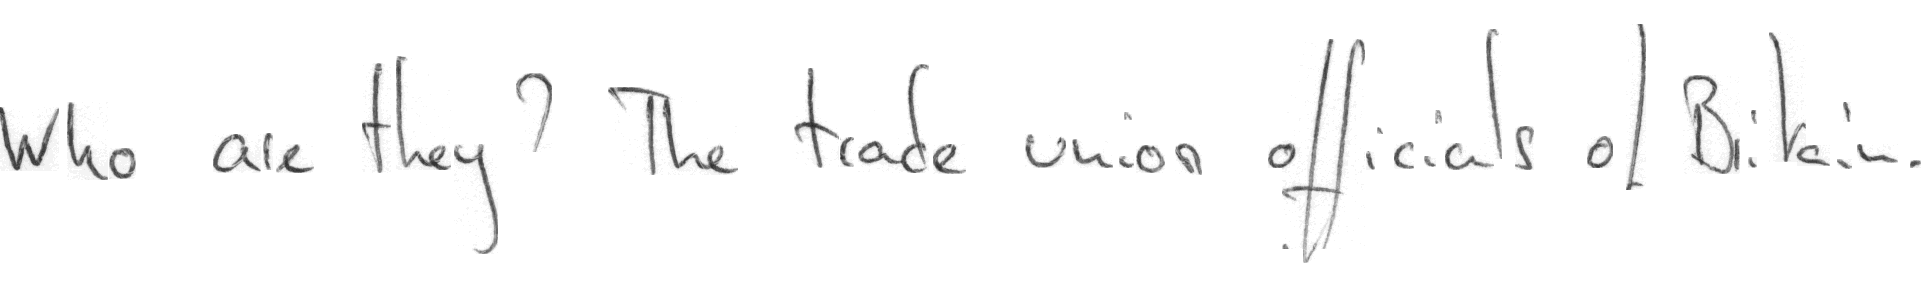 Who are they? The trade union officials of Britain.